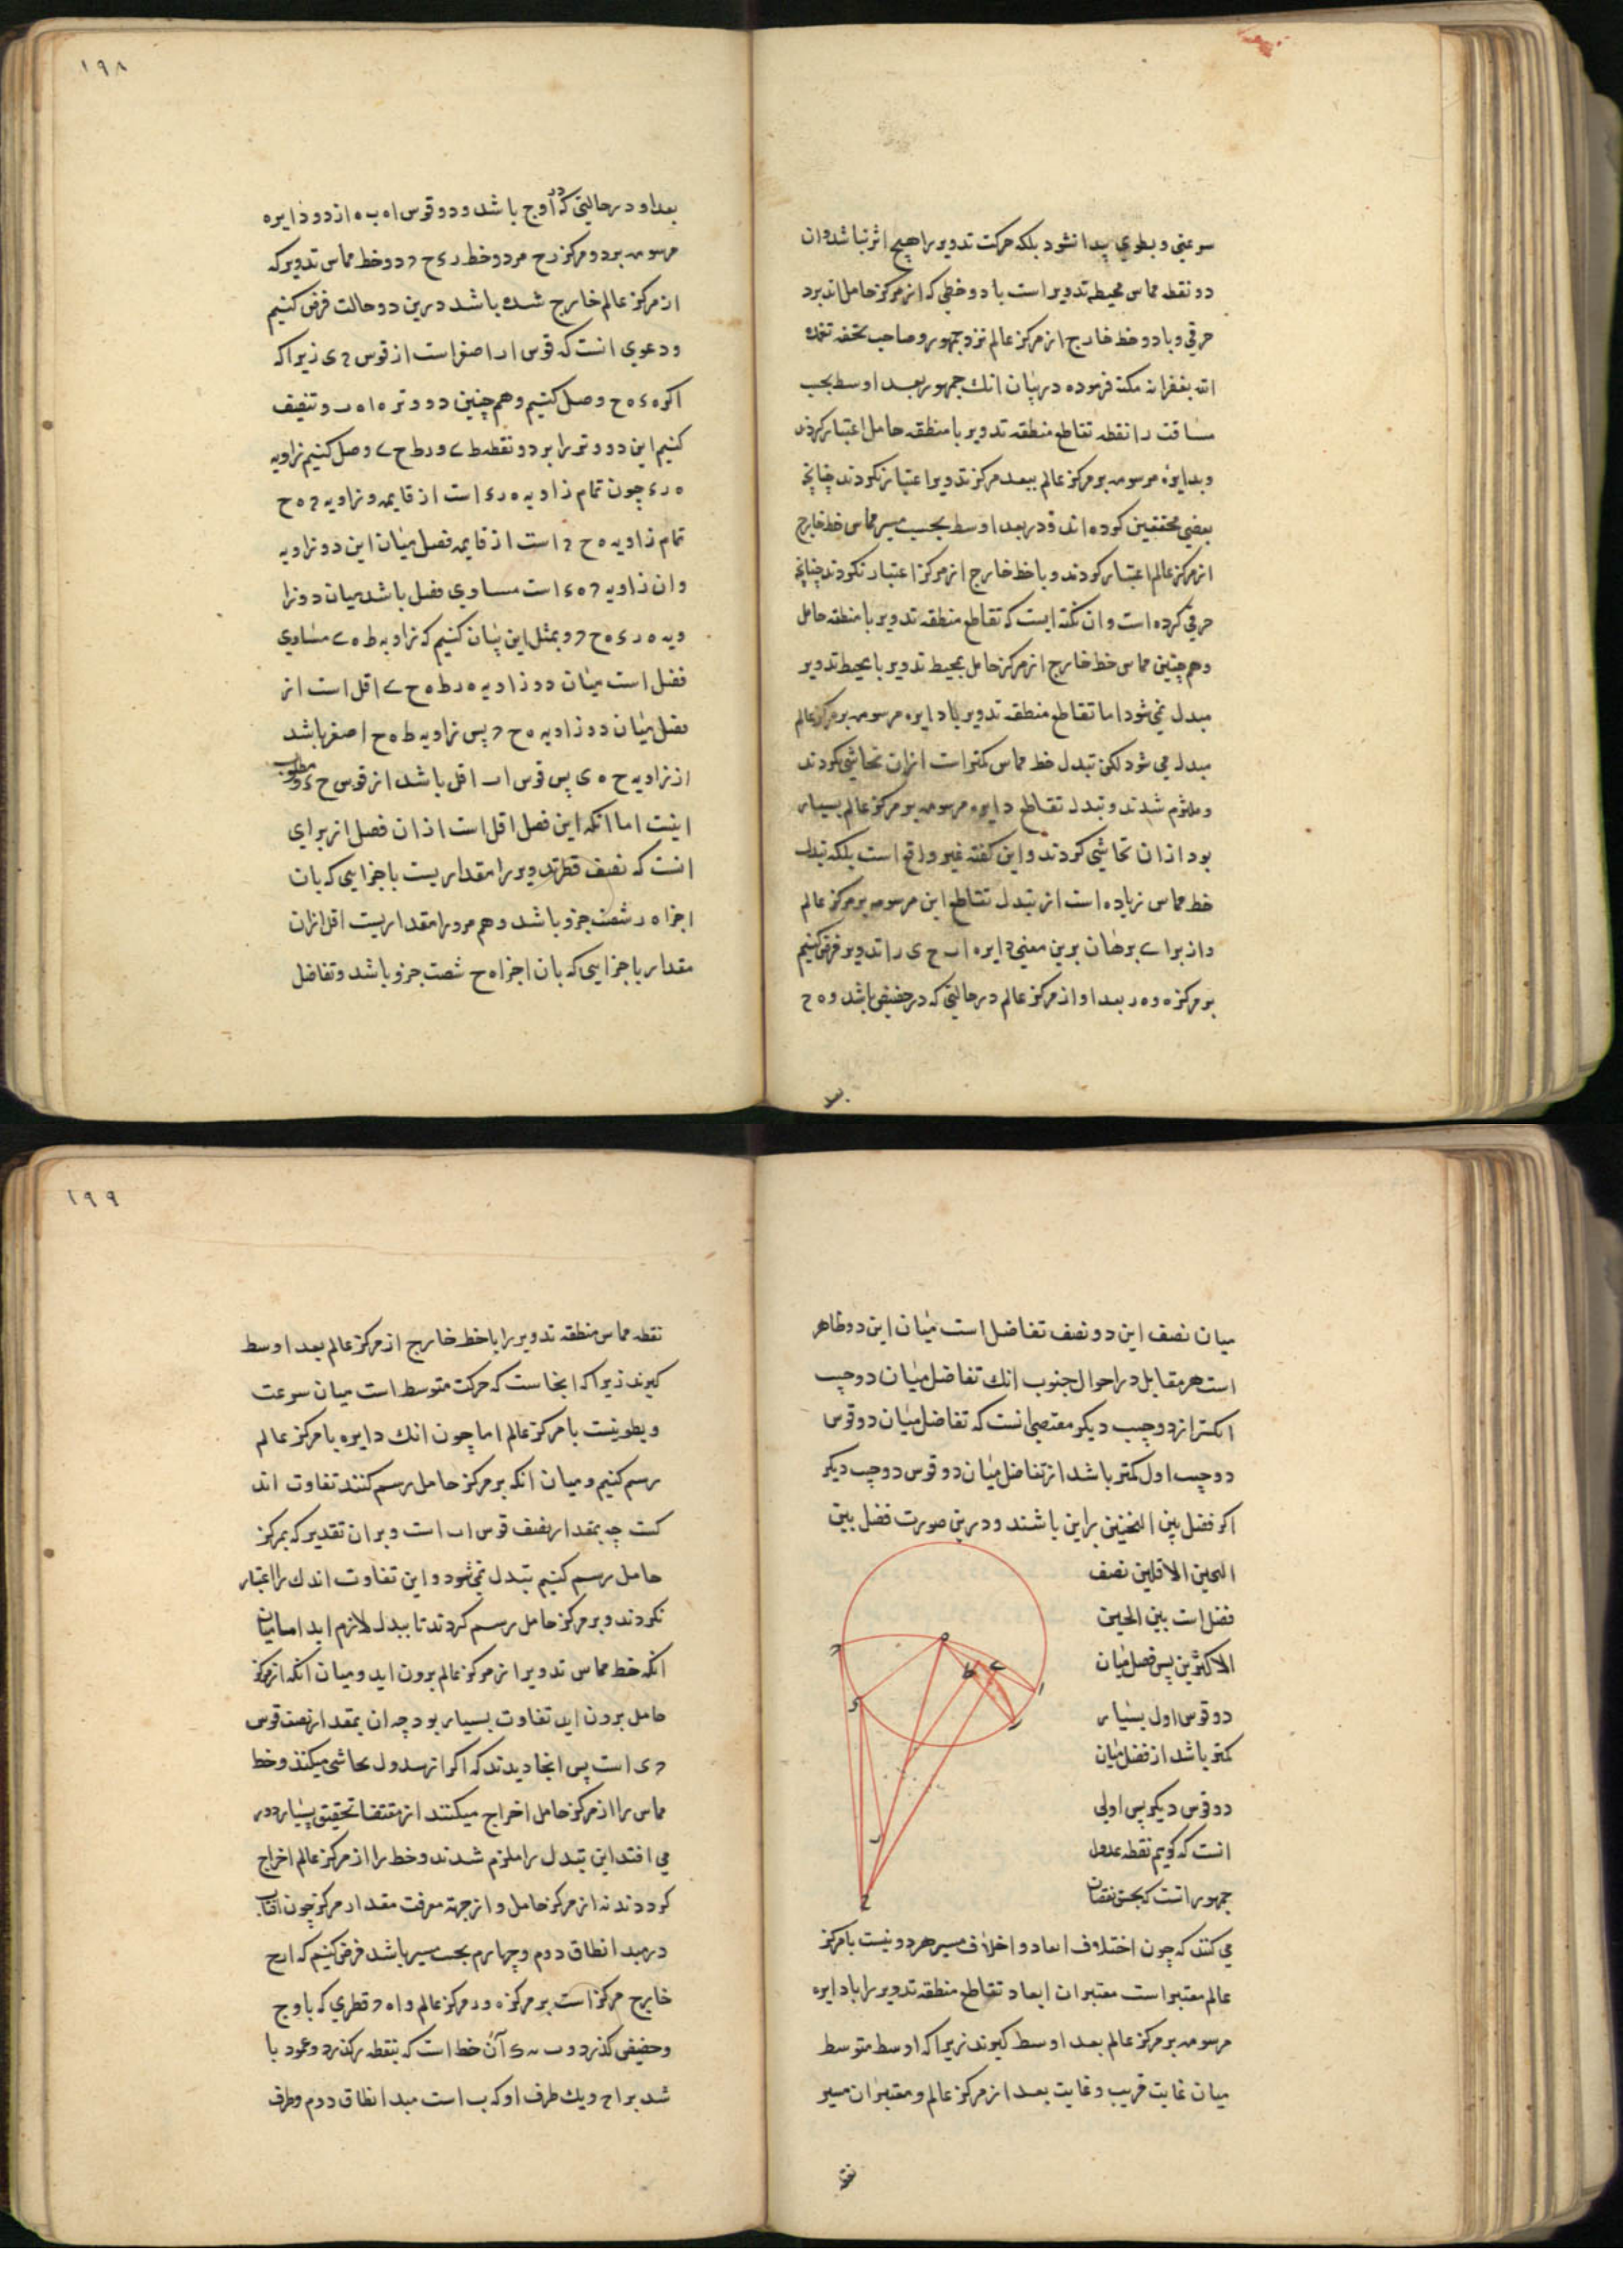 سرعتی و بطوي پیدا نشود بلکه حرکت تدویر را هیچ اثر نباشد وان
دو نقطه مماس محیط تدویر است با دو خطی که از مرکز حامل اند برد
حرقی و با دو خط خارج از مرکز عالم نزد جمهور و صاحب تحفه تغمده
الله بغفرانه نکته فرموده در بیان انك جمهور بعد اوسط بحسب
مسافت را نقطه تقاطع منطقه تدویر با منطقه حامل اعتبار کردند
وبدایره مرسومه بر مرکز عالم ببعد مرکز تدویر اعتبار نکردند چنانچه
بعضی محققین کرده اند ودر بعد اوسط بحسب مسیر مماس خط خارج
از مرکز عالم اعتبار کردند و با خط خارج از مرکز اعتبار نکردند چنانچه
حرقی کرده است و ان نکته ایست که تقاطع منطقه تدویر با منطقه حامل
وهم چنین مماس خط خارج از مرکز حامل بمحیط تدویر با محیط تدویر
مبدل نمی شود اما تقاطع منطقه تدویر با دایره مرسومه بر مرکز عالم
مبدل می شود لکن تبدل خط مماس کمتر است از ان تحاشی نکردند
وملتزم شدند و تبدل تقاطع دایره مرسومه بر مرکز عالم بسیار
بود از ان تحاشی کردند و این گفته غیر واقع است بلکه تبدل
خط مماس زیاده است از تبدل تقاطع این مرسومه بر مرکز عالم
واز براے برهان برین معنی دایره اب ح ی را تدویر فرض کنیم
بر مرکز ه و ه ر بعد او از مرکز عالم در حالتی که در حضیض باشد و ه ح
بعد
۱۹۸
بعد او در حالتی که در اوج باشد و دو قوس ا ه ب ه از دو دایره
مرسومه بر دو مرکز رح مر دو خط ر ی ح د دو خط مماس تدویر که
از مرکز عالم خارج شده باشد درین دو حالت فرض کنیم
ودعوی انست که قوس اب اصغر است از قوس د ی زیرا که
اکر ه ی ه ح وصل کنیم وهم چنین دو وتر ه ا ه ب و تنصیف
کنیم این دو وتر را بر دو نقطه ط ے و ر ط ح ے وصل کنیم زاویه
ه ر ی چون تمام زاویه ه ر ی است از قایمه و زاویه د ه ح
تمام زاویه ه ح د است از قایمه فضل میان این دو زاویه
وان زاویه د ه ی است مساوی فضل باشد میان دو زا
ویه ه ر ی ه ح د و بمثل این بیان کنیم که زاویه ط ه ے مساوی
فضل است میان دو زاویه ه ر ط ه ح ے اقل است از
فضل میان دو زاویه ه ح د پس زاویه ط ه ح اصغر باشد
از زاویه ح ه ی پس قوس اب اقل باشد از قوس ح ی و مطلوب
اینست اما انکه این فصل اقل است از ان فصل از برای
انست که نصف قطر تدویر را مقداریست باجزایی که بان
اجزا ه ر شصت جزو باشد و هم مرورا مقداریست اقل ازان
مقدار باجزایی که بان اجزا ه ح شصت جزو باشد و تفاضل
میان نصف این دو نصف تفاضل است میان این دو ظاهر
است هر مقابل در احوال جنوب انك تفاضل میان دو جیب
اکثر از دو جیب دیکر مقتضی انست که تفاضل میان دو قوس
دو جیب اول کمتر باشد از تفاضل میان دو قوس دو جیب دیکر
اکر فضل بین الجیبین براین باشند و درین صورت فضل بین
الجیبین الاقلین نصف
فضل است بین الجیبین
الاکثرین پس فصل میان
دو قوس اول بسیار
کمتر باشد از فضل میان
دو قوس دیکر پس اولی
انست که کویم نقطه عدول
جمهور انست که بحسن نقصان
ه
د
ط
ے
ا
ب
ی
ر
ح
می کنند که چون اختلاف ابعاد و اختلاف مسیر هر دو نسبت با مرکز
عالم معتبر است معتبران ابعاد تقاطع منطقه تدویر را با دایره
مرسومه بر مرکز عالم بعد اوسط کیرند زیرا که اوسط متوسط
میان غایت قریب و غایت بعد از مرکز عالم و معتبران مسیر
نقطه
۱۹۹
نقطه مماس منطقه تدویر را با خط خارج از مرکز عالم بعد اوسط
کیرند زیرا که انجاست که حرکت متوسط است میان سرعت
و بطو نسبت با مرکز عالم اما چون انك دایره با مرکز عالم
رسم کنیم و میان انکه بر مرکز حامل رسم کنند تفاوت اند
کست چه بمقدار نصف قوس اب است و بر ان تقدیر که بمرکز
حامل رسم کنیم تبدل نمی شود و این تفاوت اندك را اعتبار
نکردند و بر مرکز حامل رسم کردند تا تبدل لازم اید اما میان
انکه خط مماس تدویر از مرکز عالم برون اید و میان انکه از مرکز
حامل برون اید تفاوت بسیار بود چه ان بمقدار نصف قوس
د ی است پس انجا دیدند که اکر از تبدل تحاشی میکنند و خط
مماس را از مرکز حامل اخراج میکنند از مقتضا تحقیق بسیار دور
می افتد این تبدل را ملزم شدند و خط را از مرکز عالم اخراج
کردند نه از مرکز حامل و از جهة معرفت مقدار مرکز چون افتاب
در مبدا نطاق دوم و چهارم بحسب مسیر باشد فرض کنیم که ا ب ح
خارج مرکز است بر مرکز ه و ر مرکز عالم و ا ه د قطری که باوج
وحضیض کذرد و ب ر ی آن خط است که بنقطه ر کذرد و عمود با
شد بر ا ح و یك طرف او که ب است مبدا نطاق دوم و طرف